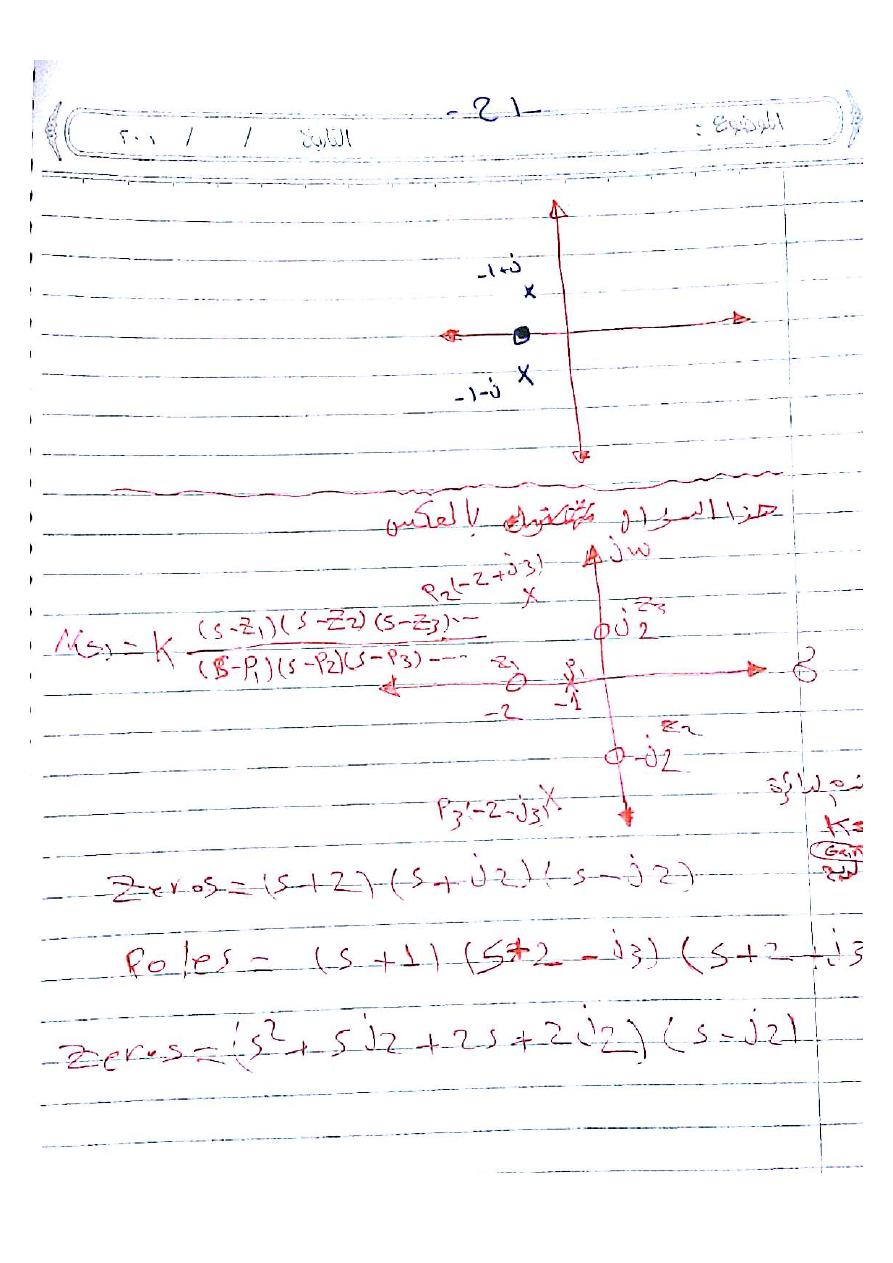 -21-
الموضوع : التاريخ / / ٢٠١
-1+j
x
x
-1-j
هذا السؤال بالعكس
jw
P2(-2+j3)
x
Z3
j2
M(s) = K (s-Z1)(s-Z2)(s-Z3)---
(s-P1)(s-P2)(s-P3)----
Z1 P1
-2 -1
Z2
-j2
P3(-2-j3) x
K=
Gain
Zeros = (s+2)(s+j2)(s-j2)
Poles = (s+1)(s+2-j3)(s+2+j3
Zeros = (s²+sj2+2s+2j2)(s-j2)